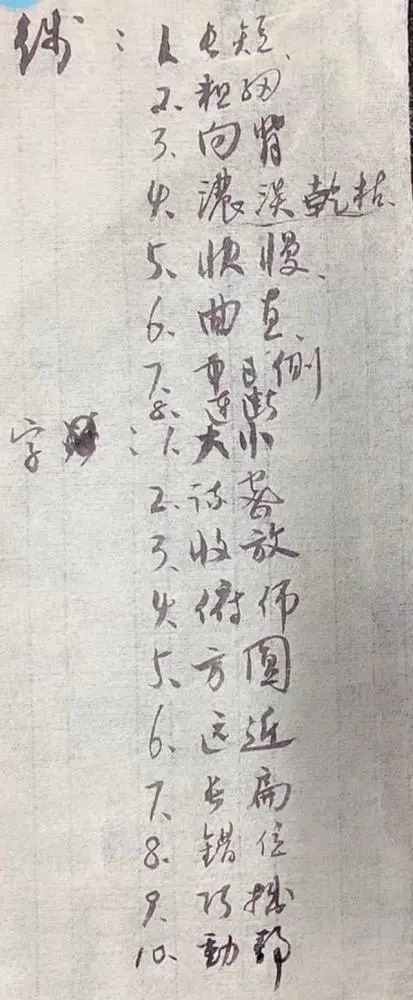 线:1、长短、
2、粗細
3、向背
4、濃淡乾枯、
5、快慢、
6、曲直、
7、側
8、连断
字:1、大小
2、疏密
3、收放
4、俯仰
5、方圓
6、远近
7、长扁
8、錯位
9、巧拙
10、動靜